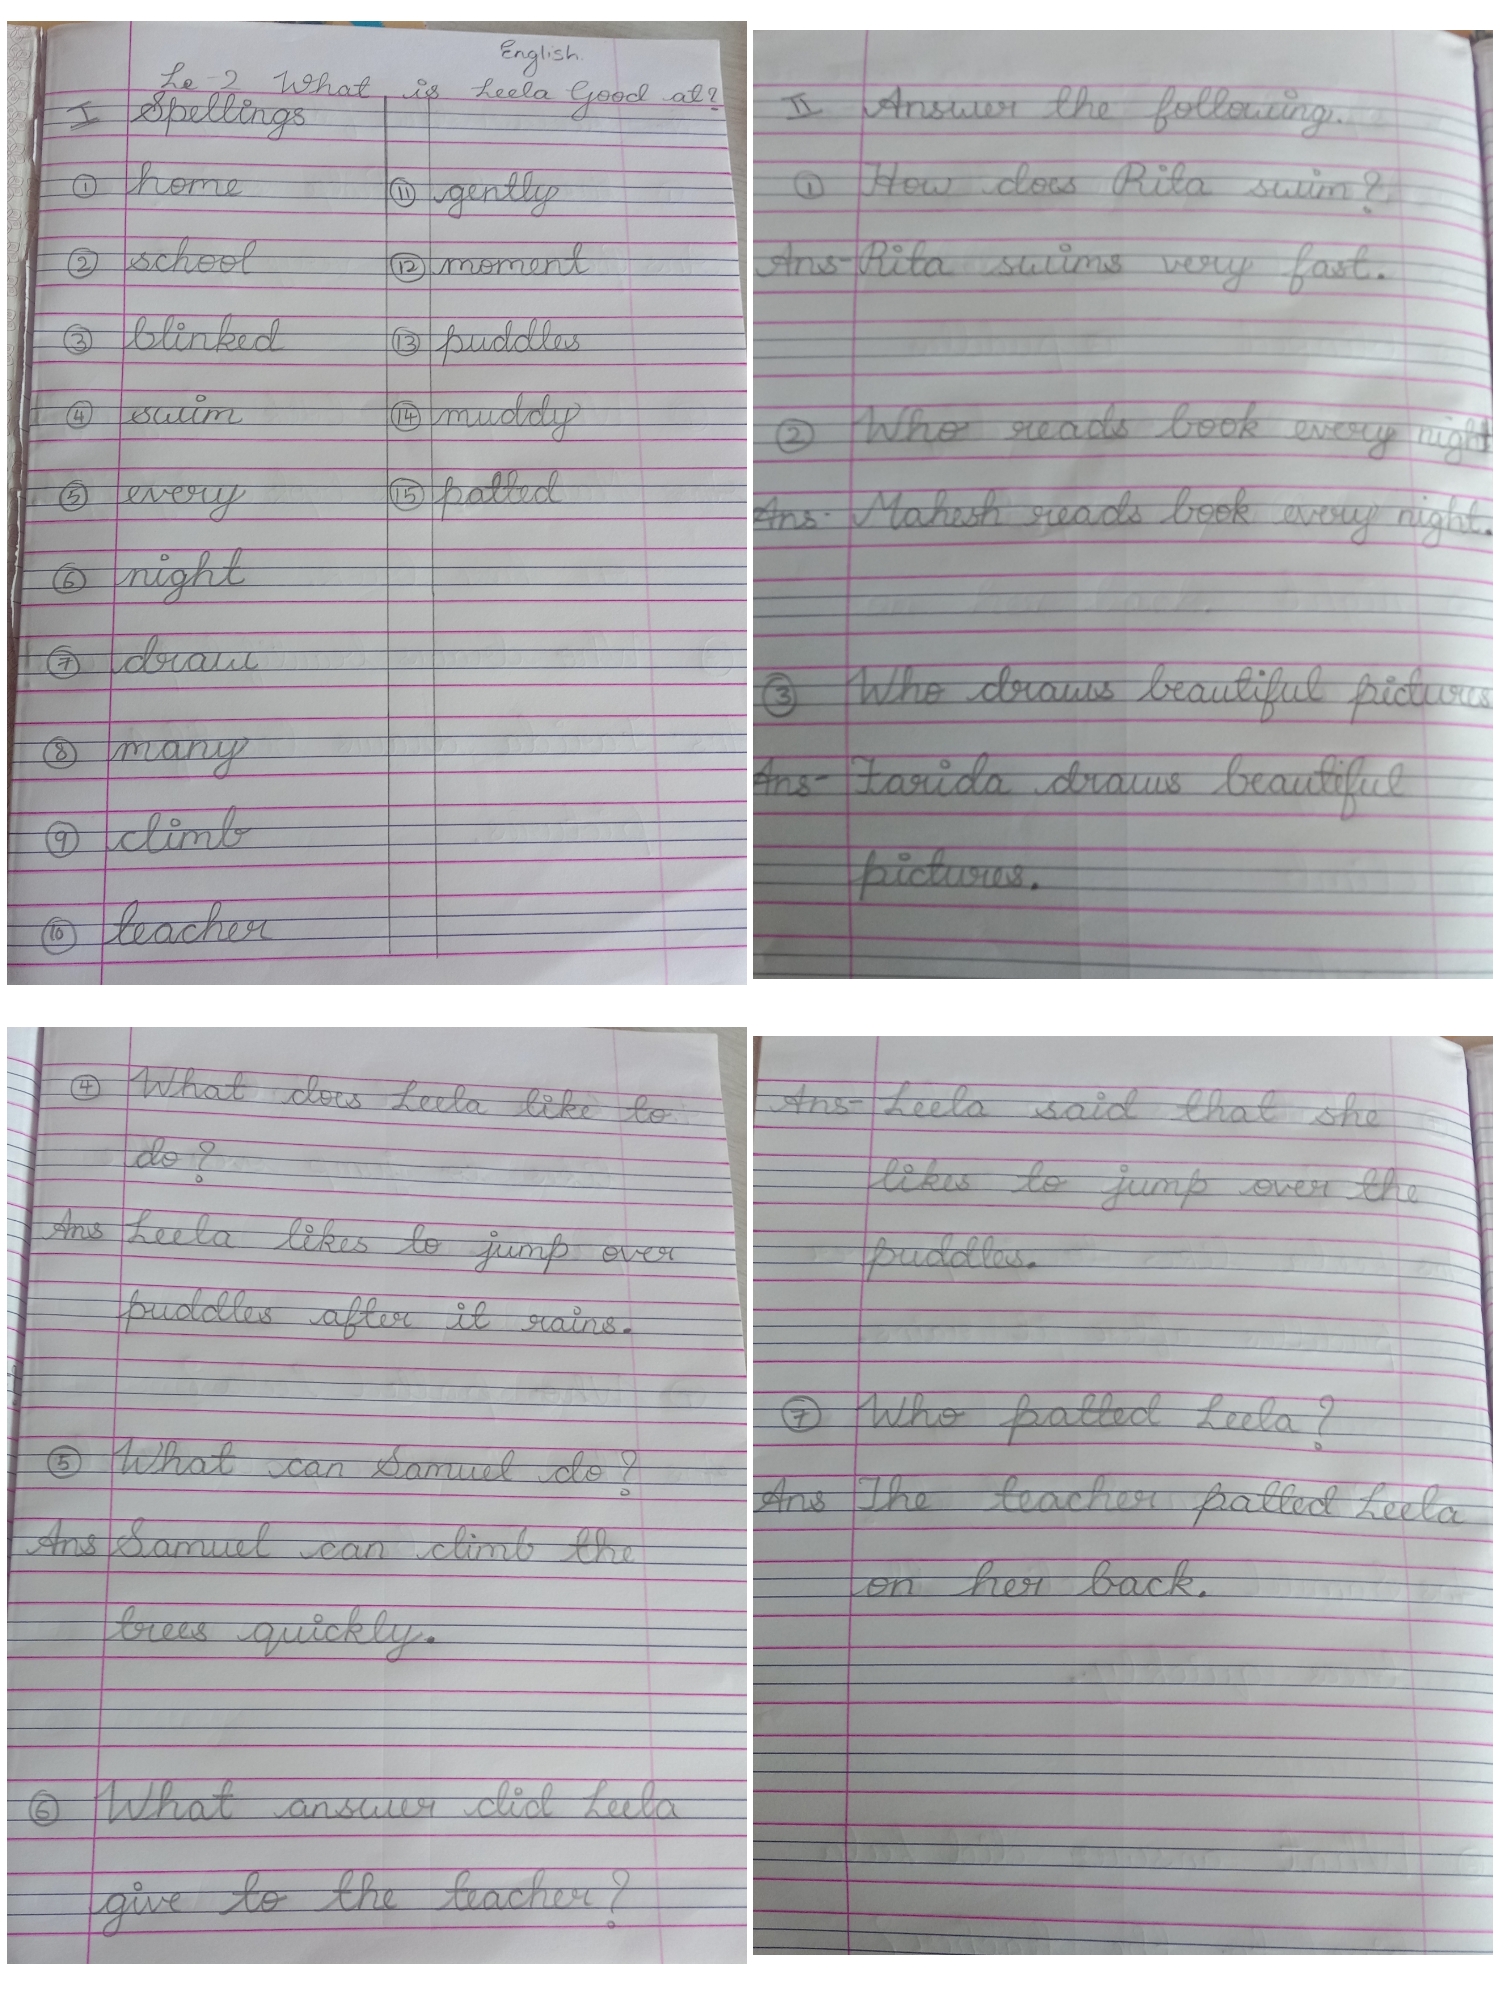 English.
Le-2 What is Leela Good at?
I Spellings
① home
② school
③ blinked
④ swim
⑤ every
⑥ night
⑦ draw
⑧ many
⑨ climb
⑩ teacher
⑪ gently
⑫ moment
⑬ puddles
⑭ muddy
⑮ patted
II Answer the following.
① How does Rita swim?
Ans- Rita swims very fast.
② Who reads book every night
Ans- Mahesh reads book every night.
③ Who draws beautiful pictures
Ans- Farida draws beautiful
pictures.
④ What does Leela like to
do?
Ans Leela likes to jump over
puddles after it rains.
⑤ What can Samuel do?
Ans Samuel can climb the
trees quickly.
⑥ What answer did Leela
give to the teacher?
Ans- Leela said that she
likes to jump over the
puddles.
⑦ Who patted Leela?
Ans The teacher patted Leela
on her back.